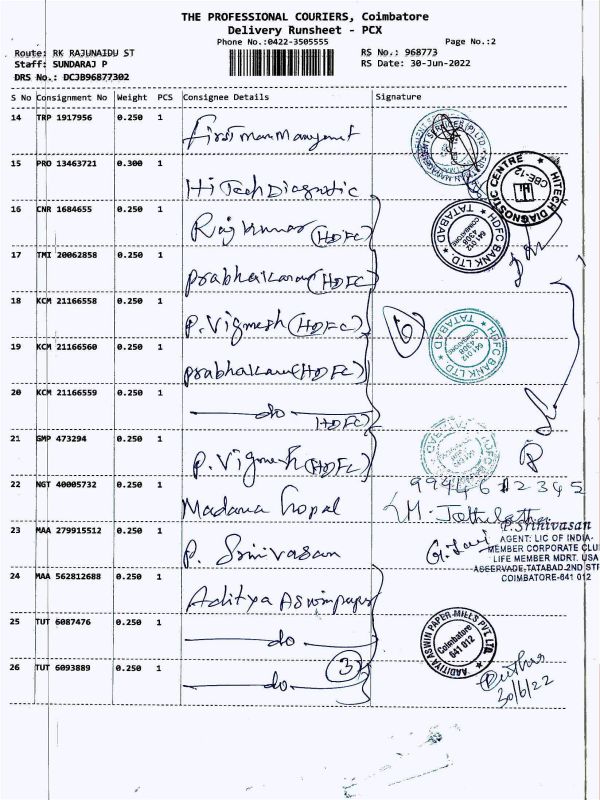 THE PROFESSIONAL COURIERS, Coimbatore
Delivery Runsheet - PCX
Phone No.:0422-3505555 Page No.:2
Route: RK RAJUNAIDU ST RS No.: 968773
Staff: SUNDARAJ P RS Date: 30-Jun-2022
DRS No.: DCJB96877302
S No Consignment No Weight PCS Consignee Details Signature
14 TRP 1917956 0.250 1
First Man Management
15 PRO 13463721 0.300 1
HiTech Diagnostic
HITECH DIAGNOSTIC CENTRE CBE-12
16 CNR 1684655 0.250 1
Raj Kumar (HDFC)
HDFC BANK LTD TATABAD 4308 COIMBATORE 641 012
17 TMI 20062858 0.250 1
Prabhakaran (HDFC)
18 KCM 21166558 0.250 1
P. Vignesh (HDFC)
6
19 KCM 21166560 0.250 1
Prabhakaran (HDFC)
HDFC BANK LTD TATABAD 4308 COIMBATORE 641 012
20 KCM 21166559 0.250 1
do (HDFC)
21 GMP 473294 0.250 1
P. Vignesh (HDFC)
22 NGT 40005732 0.250 1
Madana Gopal
M.
23 MAA 279915512 0.250 1
P. Srinivasan
P. Srinivasan
AGENT: LIC OF INDIA
MEMBER CORPORATE CLU
LIFE MEMBER MDRT. USA
TATABAD 2ND STR
COIMBATORE-641 012
24 MAA 562812688 0.250 1
Aditya Aswin paper
25 TUT 6087476 0.250 1
do
AADITIYA ASWIN PAPER MILLS PVT. LTD. Coimbatore 641 012
26 TUT 6093889 0.250 1
do
3
30/6/22